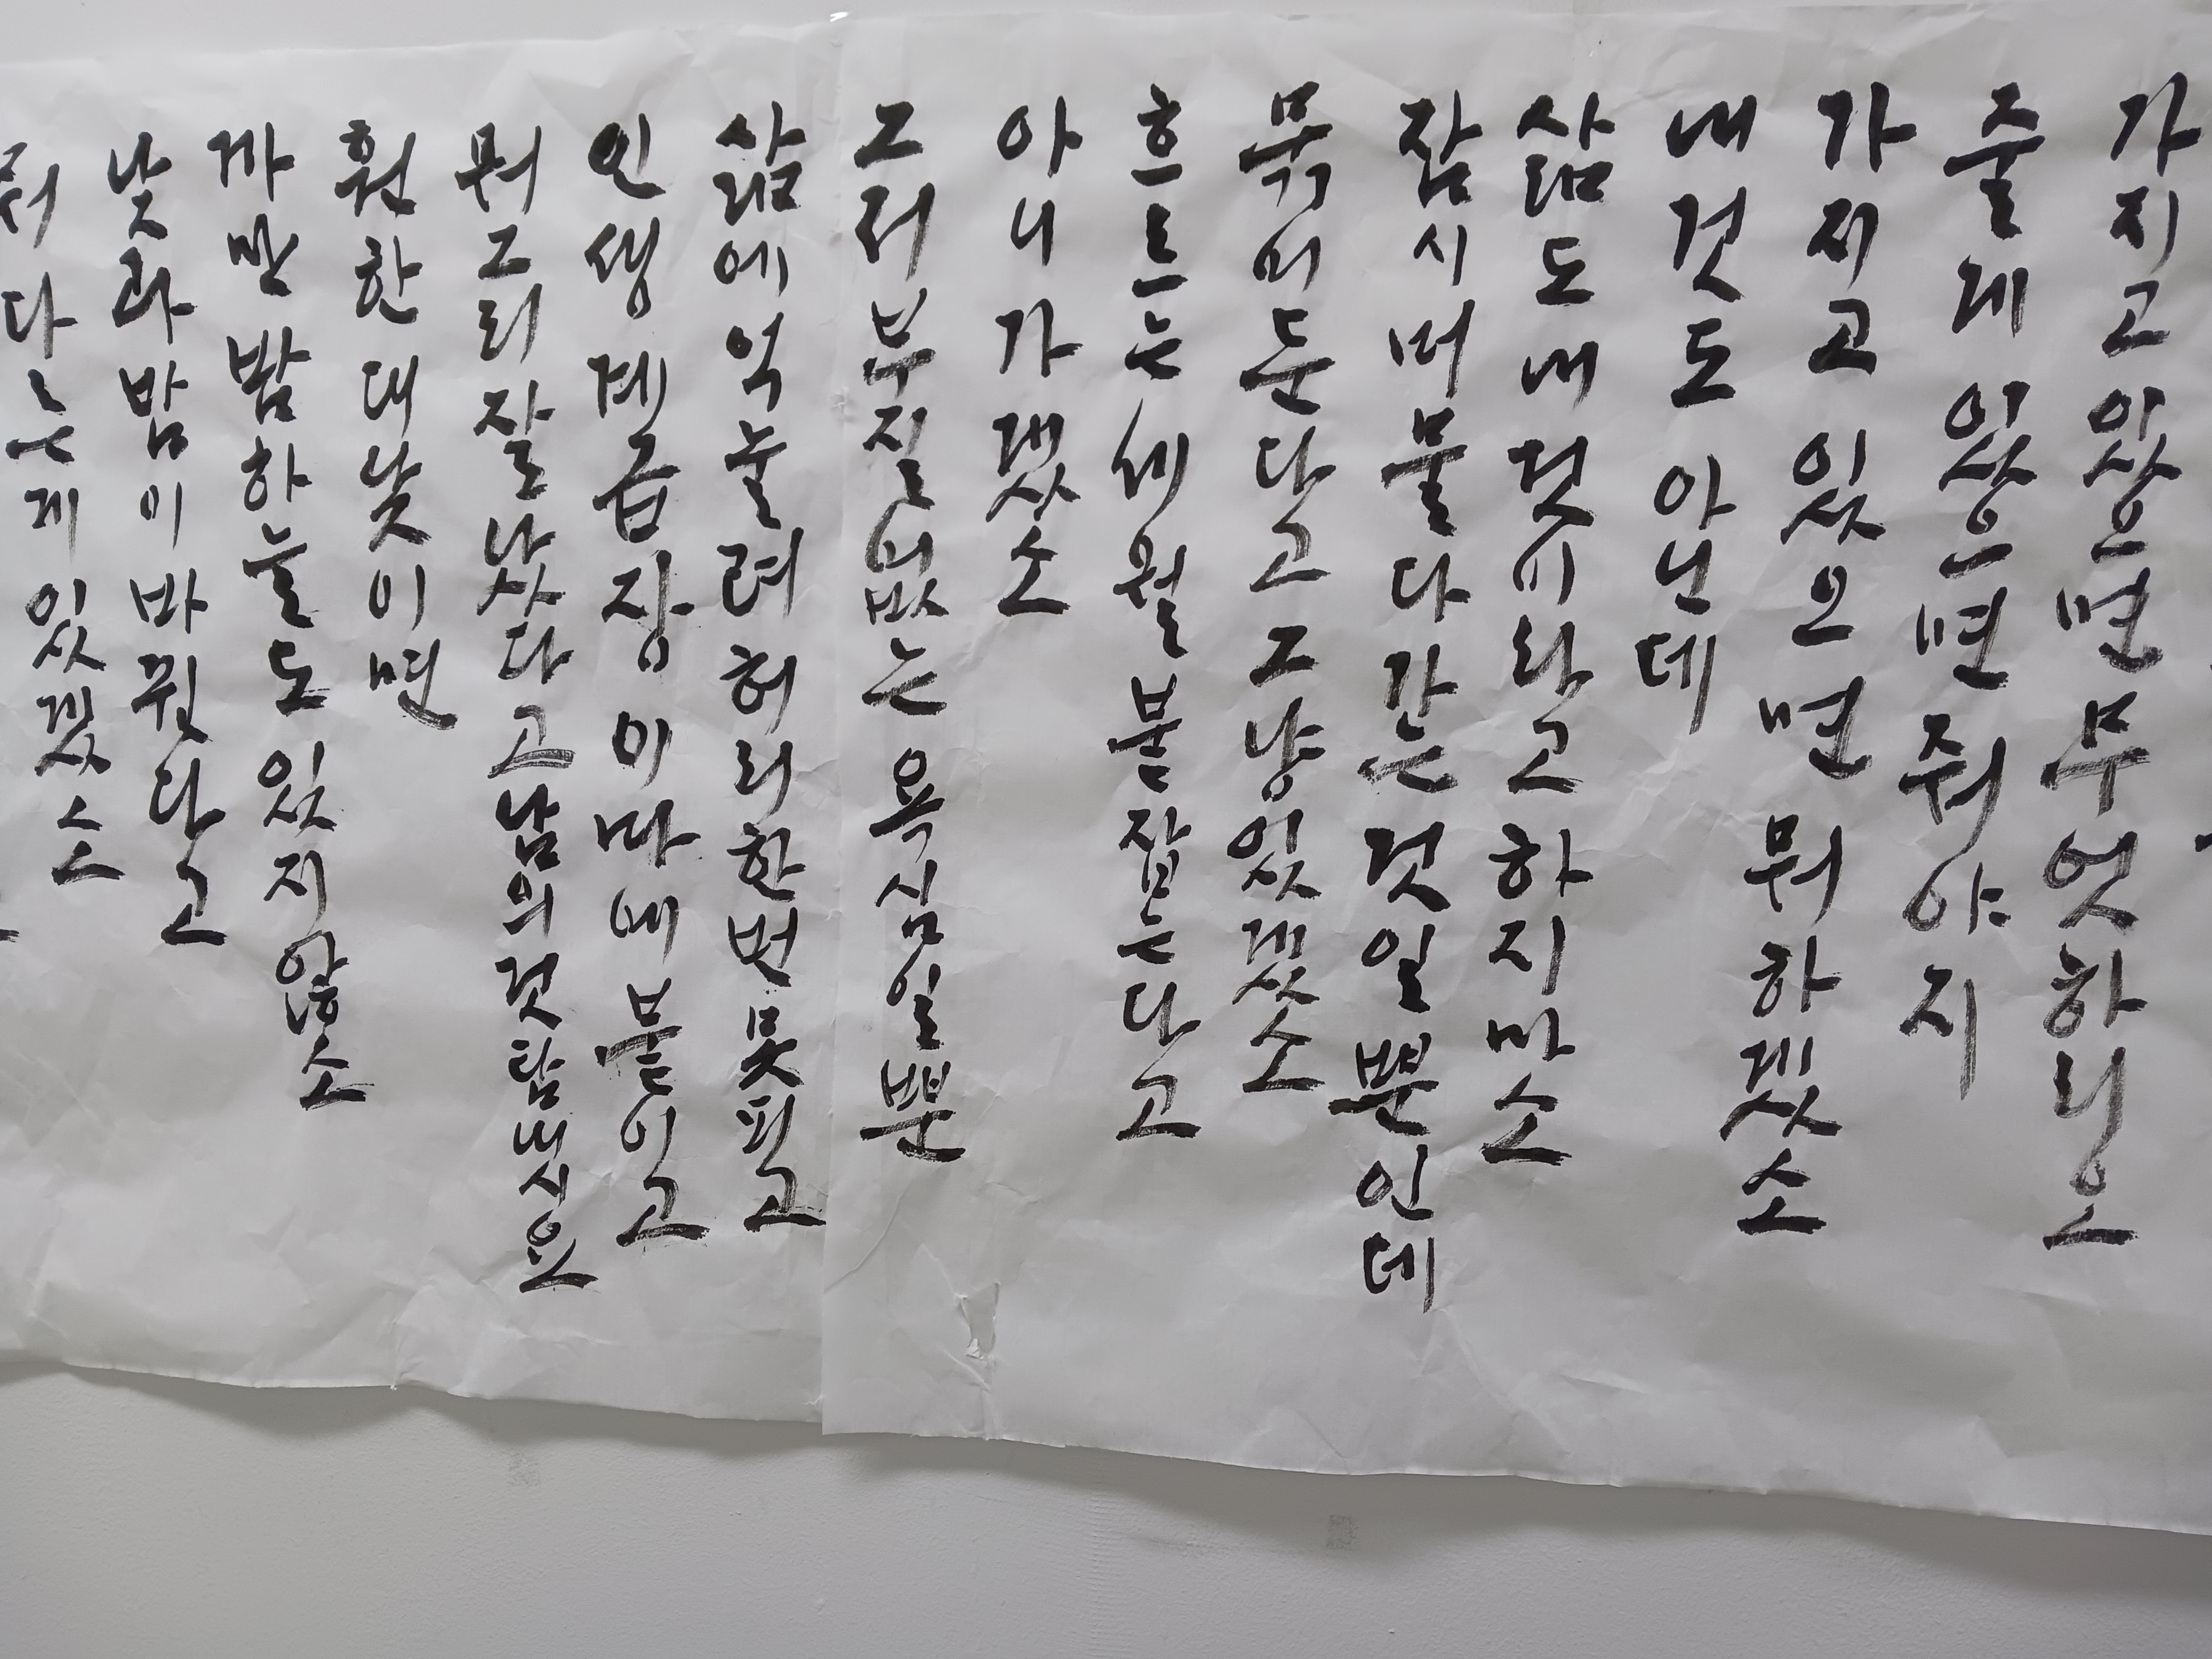 가지고 있으면 무엇하리오
줄게 있으면 줘야지
가지고 있으면 뭐하겠소
내것도 아닌데
삶도 내것이라고 하지마소
잠시 머물다 가는 것일뿐인데
묶어둔다고 그냥 있겠소
흐르는 세월 붙잡는다고
아니 가겠소
그저 부질없는 욕심일뿐
삶에 억눌려 허리 한번 못피고
인생 계급장 이마에 붙이고
뭐그리 잘났다고 남의 것 탐내시오
훤한 대낮이면
까만 밤하늘도 있지 않소
낮과 밤이 바뀐다고
다는게 있겠소